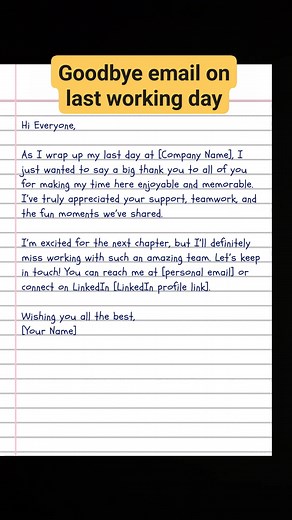 Goodbye email on
last working day
Hi Everyone,
As I wrap up my last day at [Company Name], I
just wanted to say a big thank you to all of you
for making my time here enjoyable and memorable.
I've truly appreciated your support, teamwork, and
the fun moments we've shared.
I'm excited for the next chapter, but I'll definitely
miss working with such an amazing team. Let's keep
in touch! You can reach me at [personal email] or
connect on LinkedIn [LinkedIn profile link].
Wishing you all the best,
[Your Name]